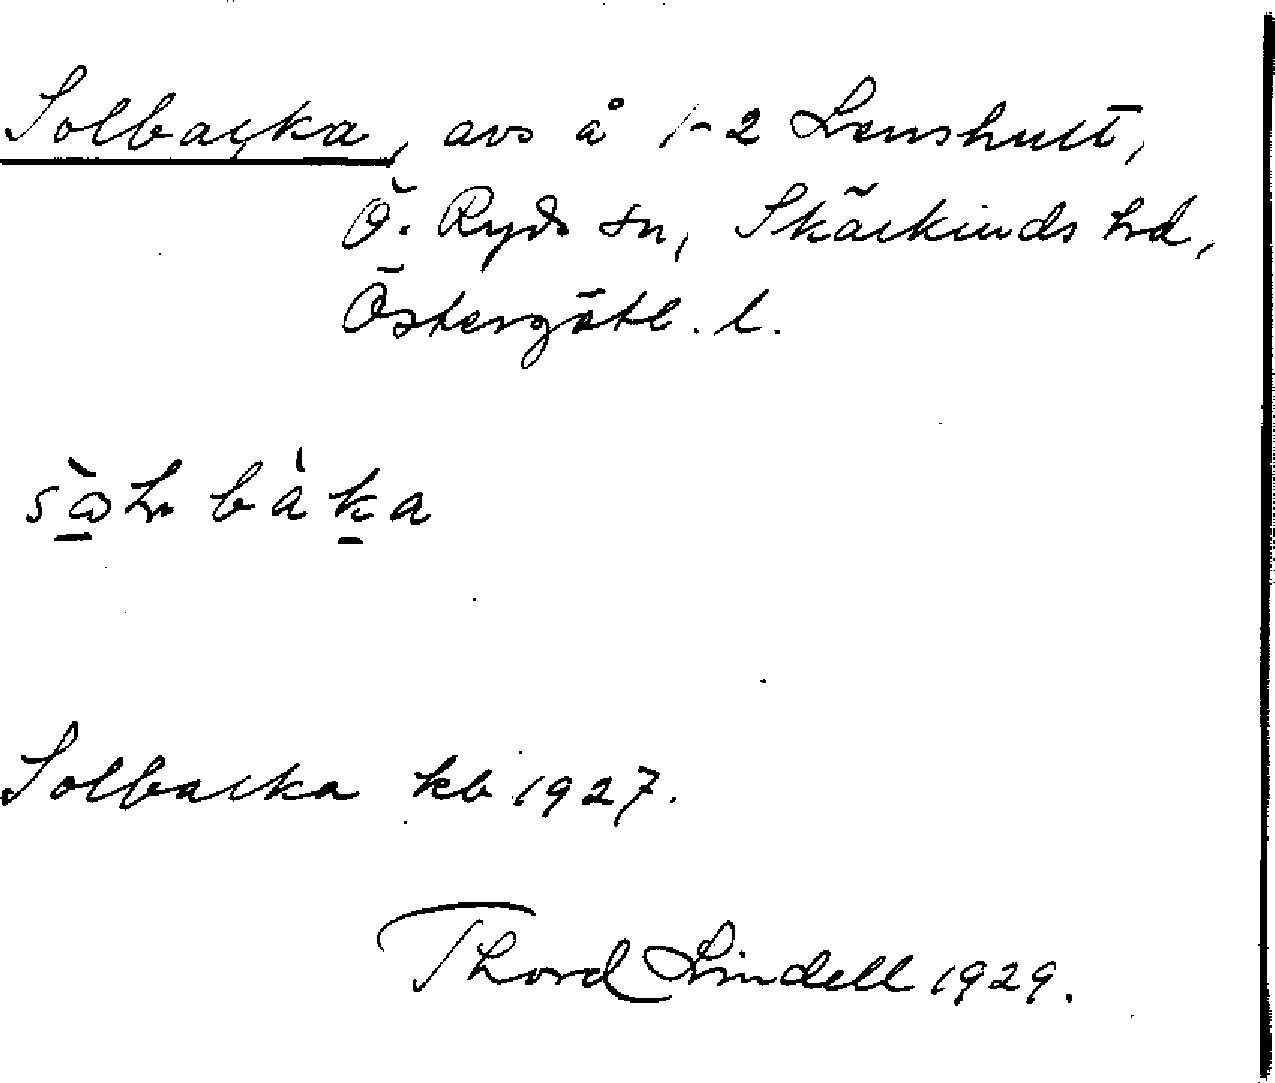 Solbacka, avs å 1-2 Lenshult,
Ö. Ryds sn, Skärkinds hd,
Östergötl. l.
Solbacka kb 1927.
Thord Lindell 1929.